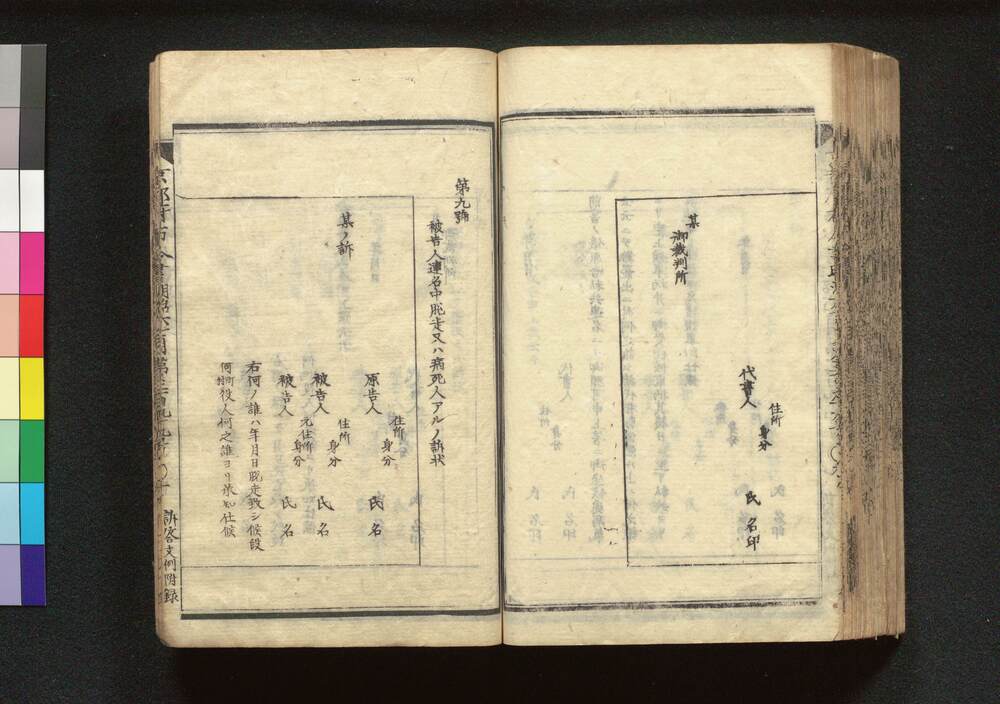 某
御裁判所
代書人
住所
身分
氏名印
第九號
被告人連名中脱走又ハ病死人アルノ訴状
某ノ訴
原告人
住所
身分
氏名
被告人
住所
身分
氏名
被告人
元住所
身分
氏名
右何ノ誰ハ年月日脱走致シ候段
何町役人何之誰ヨリ承知仕候
訴答文例附録